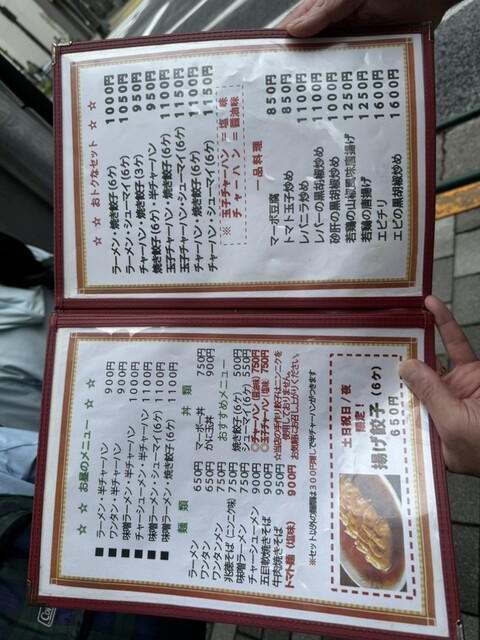 ☆ ☆ おトクなセット ☆ ☆
ラーメン・焼き餃子(6ケ) 1000円
ラーメン・シューマイ(6ケ) 1050円
チャーハン・焼き餃子(3ケ) 950円
焼き餃子(6ケ)・半チャーハン 950円
玉子チャーハン・焼き餃子(6ケ) 1100円
玉子チャーハン・シューマイ(6ケ) 1150円
チャーハン・焼き餃子(6ケ) 1100円
チャーハン・シューマイ(6ケ) 1150円
※ 玉子チャーハン = 塩 味
チャーハン = 醤油味
一品料理
マーボ豆腐 850円
トマト玉子炒め 850円
レバニラ炒め 1100円
レバーの黒胡椒炒め 1100円
砂肝の黒胡椒炒め 1000円
若鶏の山椒風味唐揚げ 1250円
若鶏の唐揚げ 1250円
エビチリ 1600円
エビの黒胡椒炒め 1600円
☆ ☆ お昼のメニュー ☆ ☆
■ ラーメン・半チャーハン 900円
■ ワンタン・半チャーハン 900円
■ 味噌ラーメン・半チャーハン 1000円
■ チャーシューメン・半チャーハン 1100円
■ 味噌ラーメン・シューマイ(6ケ) 1100円
■ 味噌ラーメン・焼き餃子(6ケ) 1100円
麺 類
ラーメン 650円
ワンタン 650円
ワンタンメン 750円
兆徳そば (ニンニク味) 750円
味噌ラーメン 750円
チャーシューメン 900円
五目軟焼きそば 950円
牛肉焼きそば 950円
トマト麺 (塩味) 900円
丼 類
マーボー丼 750円
かに玉丼 750円
おすすめメニュー
焼き餃子(6ケ) 500円
シューマイ(6ケ) 550円
◎チャーハン(醤油味) 750円
◎玉子チャーハン(塩味) 750円
※当店の手作り餃子はニンニクを
使用しておりません。
お気軽にお召し上がりください。
※セット以外の麺類は300円増しで半チャーハンがつきます
土日祝日/夜
限定!
揚げ餃子 (6ケ)
650円